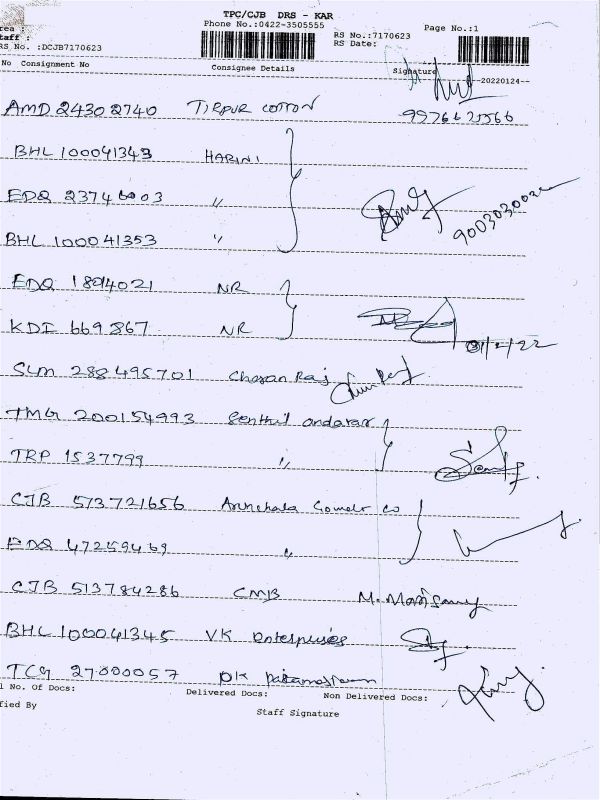 TPC/CJB DRS - KAR
Phone No.:0422-3505555
Page No.:1
rea :
taff :
RS No.:7170623
RS No. :DCJB7170623
RS Date:
No Consignment No Consignee Details Signature 20220124
AMD 24302740 TIRPUR COTTON
BHL 100041343 HARINI
EDQ 23746003 〃
90030300
BHL 100041353 〃
EDQ 1894021 NR
KDI 669867 NR
31/1/22
SLM 288495701 Charan Raj
TMG 200154993 Senthil andavar
TRP 1537799 〃
CJB 573721656 Arunchala Gounder Co
EDQ 47259469 〃
CJB 513784286 CMB M. Marisamy
BHL 100041345 VK Enterprises
TCG 27000057 DK
l No. Of Docs: Delivered Docs: Non Delivered Docs:
fied By
Staff Signature